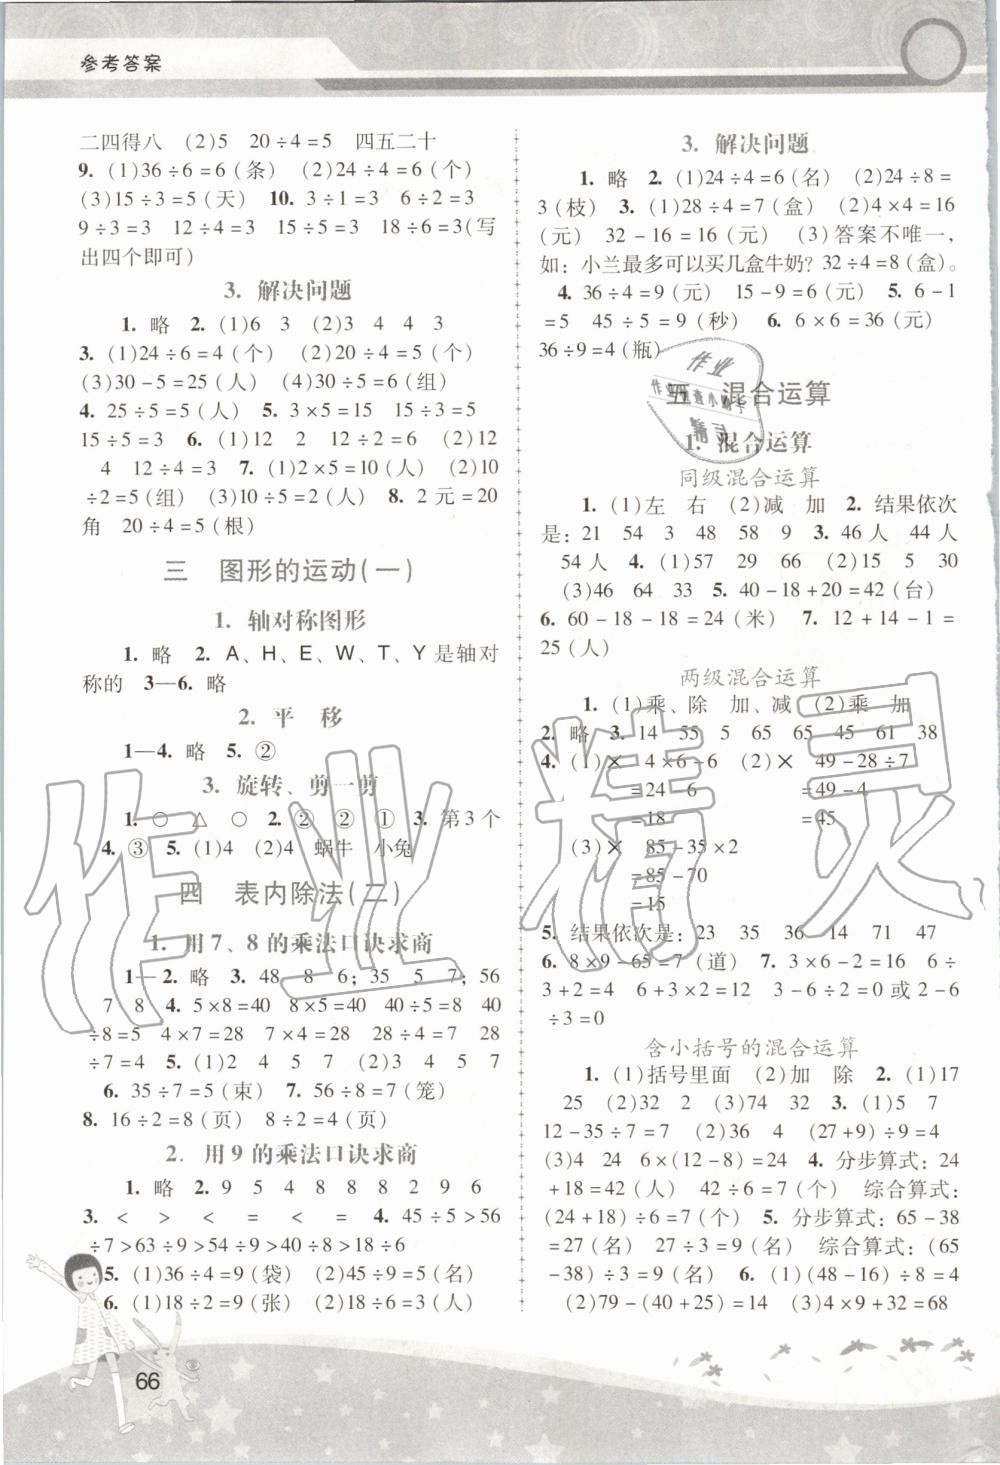 参考答案
二四得八 (2)5 20÷4=5 四五二十
9. (1)36÷6=6(条) (2)24÷4=6(个)
(3)15÷3=5(天) 10. 3÷1=3 6÷2=3
9÷3=3 12÷4=3 15÷5=3 18÷6=3(写
出四个即可)
3. 解决问题
1. 略 2. (1)6 3 (2)3 4 4 3
3. (1)24÷6=4(个) (2)20÷4=5(个)
(3)30-5=25(人) (4)30÷5=6(组)
4. 25÷5=5(人) 5. 3×5=15 15÷3=5
15÷5=3 6. (1)12 2 12÷2=6 (2)12
4 12÷4=3 7. (1)2×5=10(人) (2)10
÷2=5(组) (3)10÷5=2(人) 8. 2元=20
角 20÷4=5(根)
三 图形的运动(一)
1. 轴对称图形
1. 略 2. A、H、E、W、T、Y是轴对
称的 3—6. 略
2. 平 移
1—4. 略 5. ②
3. 旋转、剪一剪
1. ○ △ ○ 2. ② ② ① 3. 第3个
4. ③ 5. (1)4 (2)4 蜗牛 小兔
四 表内除法(二)
1. 用7、8的乘法口诀求商
1—2. 略 3. 48 8 6;35 5 7;56
7 8 4. 5×8=40 8×5=40 40÷5=8 40
÷8=5 4×7=28 7×4=28 28÷4=7 28
÷7=4 5. (1)2 4 5 7 (2)3 4 5 7
6. 35÷7=5(束) 7. 56÷8=7(笼)
8. 16÷2=8(页) 8÷2=4(页)
2. 用9的乘法口诀求商
1. 略 2. 9 5 4 8 8 8 2 9 6
3. < > < = < = 4. 45÷5>56
÷7>63÷9>54÷9>40÷8>18÷6
5. (1)36÷4=9(袋) (2)45÷9=5(名)
6. (1)18÷2=9(张) (2)18÷6=3(人)
66
3. 解决问题
1. 略 2. (1)24÷4=6(名) (2)24÷8=
3(枝) 3. (1)28÷4=7(盒) (2)4×4=16
(元) 32-16=16(元) (3)答案不唯一,
如:小兰最多可以买几盒牛奶?32÷4=8(盒)。
4. 36÷4=9(元) 15-9=6(元) 5. 6-1
=5 45÷5=9(秒) 6. 6×6=36(元)
36÷9=4(瓶)
五 混合运算
1. 混合运算
同级混合运算
1. (1)左 右 (2)减 加 2. 结果依次
是:21 54 3 48 58 9 3. 46人 44人
54人 4. (1)57 29 66 (2)15 5 30
(3)46 64 33 5. 40-18+20=42(台)
6. 60-18-18=24(米) 7. 12+14-1=
25(人)
两级混合运算
1. (1)乘、除 加、减 (2)乘 加
2. 略 3. 14 55 5 65 65 45 61 38
4. (1)× 4×6-6 (2)× 49-28÷7
=24 6 =49-4
=18 =45
(3)× 85-35×2
=85-70
=15
5. 结果依次是:23 35 36 14 71 47
6. 8×9-65=7(道) 7. 3×6-2=16 6÷
3+2=4 6+3×2=12 3-6÷2=0或2-6
÷3=0
含小括号的混合运算
1. (1)括号里面 (2)加 除 2. (1)17
25 (2)32 2 (3)74 32 3. (1)5 7
12-35÷7=7 (2)36 4 (27+9)÷9=4
(3)4 24 6×(12-8)=24 4. 分步算式:24
+18=42(人) 42÷6=7(个) 综合算式:
(24+18)÷6=7(个) 5. 分步算式:65-38
=27(名) 27÷3=9(名) 综合算式:(65
-38)÷3=9(名) 6. (1)(48-16)÷8=4
(2)79-(40+25)=14 (3)4×9+32=68
作业精灵